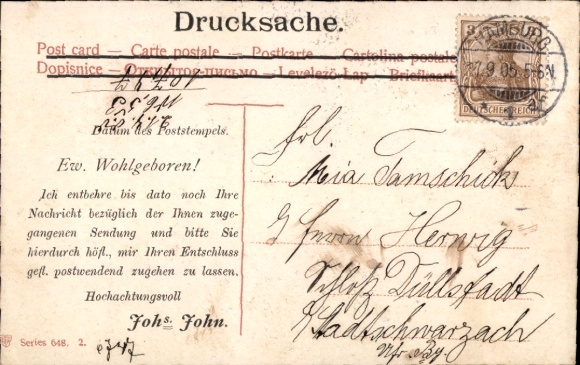 Drucksache.
Post card — Carte postale — Postkarte — Cartolina postale
Dopisnice — Открытое письмо — Levelező-Lap — Briefkaart
Datum des Poststempels.
Ew. Wohlgeboren!
Ich entbehre bis dato noch Ihre
Nachricht bezüglich der Ihnen zuge-
gangenen Sendung und bitte Sie
hierdurch höfl., mir Ihren Entschluss
gefl. postwendend zugehen zu lassen.
Hochachtungsvoll
Johs. John.
Series 648. 2.
3
HAMBURG
7.9.05. 5-6N.
DEUTSCHES REICH
Frl.
Mia Tamschick
Herwig
Schloß Düllstadt
Stadtschwarzach